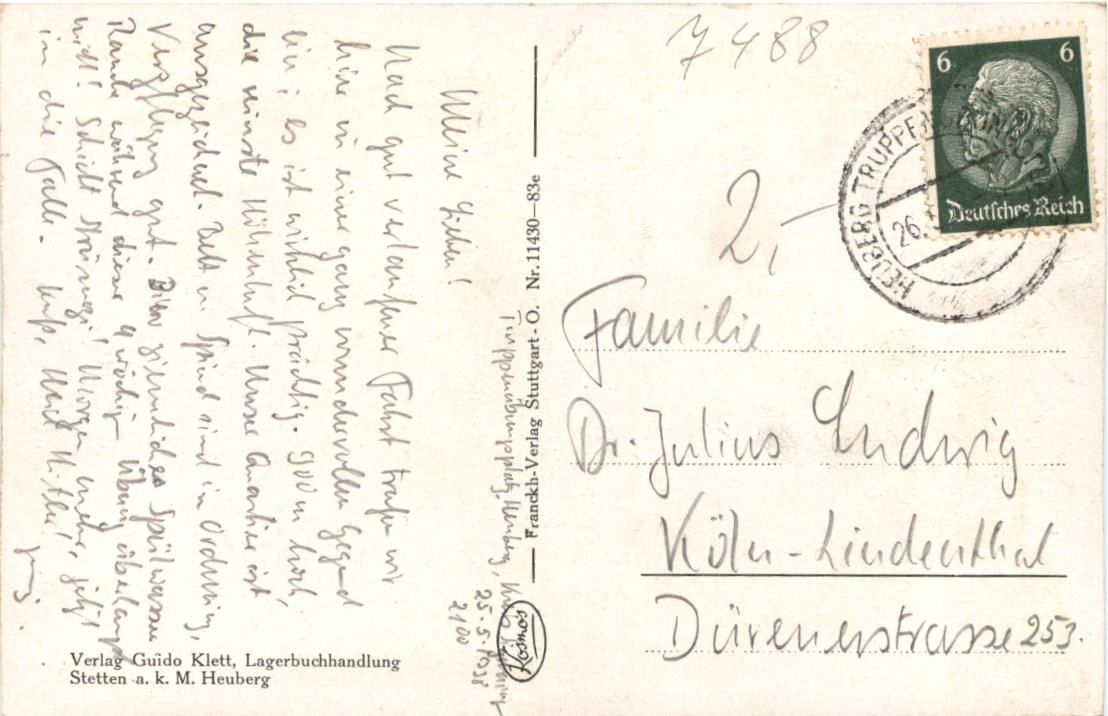 Truppenübungsplatz Heuberg,
25.5.1938
2100
Meine Lieben!
Nach gut verlaufener Fahrt trafen wir
hier in einer ganz wundervollen Gegend
ein; es ist wirklich prächtig. 900 m hoch,
die reinste Höhenluft. Unser Quartier ist
ausgezeichnet. Bett u. Spind sind in Ordnung,
Verpflegung gut. Bier ziemliches Spülwasser
Rauche während dieser Übung überhaupt
nicht! Schickt Strümpfe! Morgen mehr, jetzt
in die Falle. Kuß, Heil Hitler!
Verlag Guido Klett, Lagerbuchhandlung
Stetten a. k. M. Heuberg
Franckh-Verlag Stuttgart-O. Nr. 11430—83e
Kosmos
7488
2,-
6 6
Deutsches Reich
HEUBERG TRUPPEN
26.
Familie
Dr. Julius Ludwig
Köln-Lindenthal
Dürenerstrasse 253.